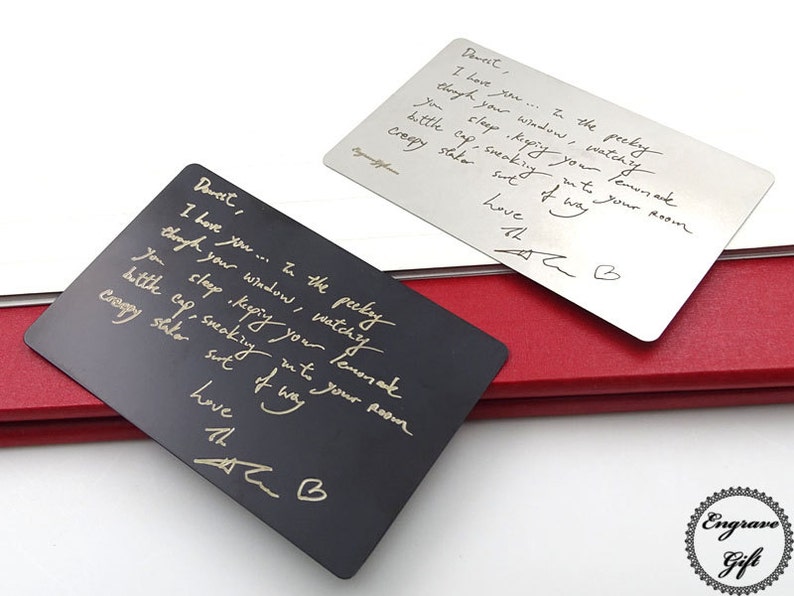 Dearest,
I love you... In the peeky
through your window, watching
you sleep, keeping your lemonade
bottle cap, sneaking into your room
creepy stalker sort of way
Love
Dearest,
I love you... In the peeky
through your window, watching
you sleep, keeping your lemonade
bottle cap, sneaking into your room
creepy stalker sort of way
Love
Engrave
Gift